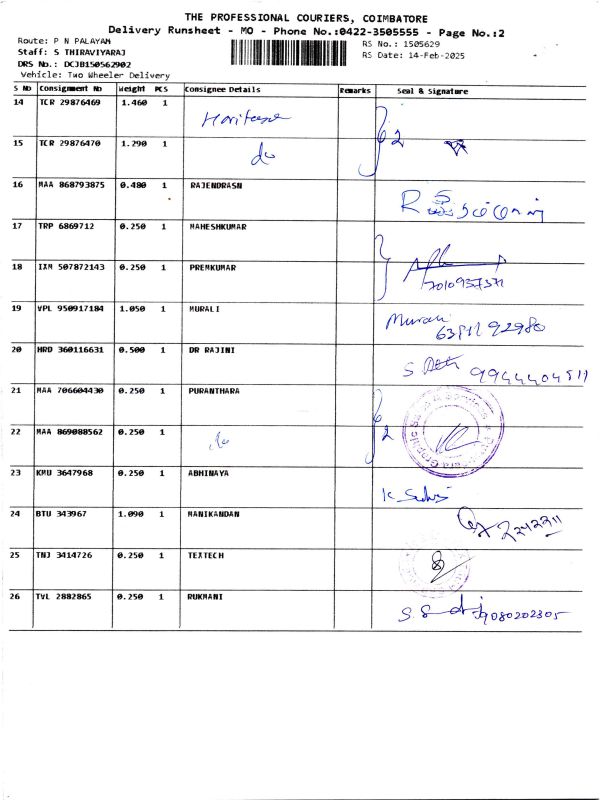 THE PROFESSIONAL COURIERS, COIMBATORE
Delivery Runsheet - MO - Phone No.:0422-3505555 - Page No.:2
Route: P N PALAYAM
RS No.: 1505629
Staff: S THIRAVIYARAJ
RS Date: 14-Feb-2025
DRS No.: DCJB150562902
Vehicle: Two Wheeler Delivery
S No Consignment No Weight PCS Consignee Details Remarks Seal & Signature
14 TCR 29876469 1.460 1 2
15 TCR 29876470 1.290 1 do
16 MAA 868793875 0.480 1 RAJENDRASN
17 TRP 6869712 0.250 1 MAHESHKUMAR
18 IXM 507872143 0.250 1 PREMKUMAR
19 VPL 950917184 1.050 1 MURALI Murali
20 HRD 360116631 0.500 1 DR RAJINI 9944404511
21 MAA 706604430 0.250 1 PURANTHARA
22 MAA 869088562 0.250 1 do 2
23 KMU 3647968 0.250 1 ABHINAYA
24 BTU 343967 1.090 1 MANIKANDAN
25 TNJ 3414726 0.250 1 TEXTECH
26 TVL 2882865 0.250 1 RUKMANI 9080202305